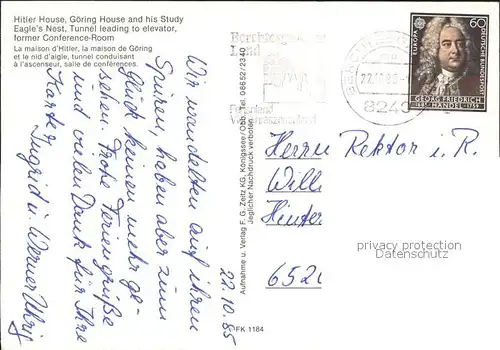 Hitler House, Göring House and his Study
Eagle's Nest, Tunnel leading to elevator,
former Conference-Room
La maison d'Hitler, la maison de Göring
et le nid d'aigle, tunnel conduisant
à l'ascenseur, salle de conférences.
22.10.85
Wir wandelten auf ihren
Spuren, haben aber zum
Glück keinen mehr ge-
sehen. Frohe Feriengrüße
und vielen Dank für Ihre
Karte,
Ingrid u. Werner
FK 1184
Aufnahme u. Verlag F. G. Zeitz KG, Königssee/Obb. Tel. 08652/2340
Jeglicher Nachdruck verboten
Berchtesgadener
Land
Ferienland
22.10.85
8240
EUROPA
60
DEUTSCHE BUNDESPOST
GEORG FRIEDRICH
1685 HÄNDEL 1759
Herrn Rektor i. R.
Willi
Hinter
652
privacy protection
Datenschutz